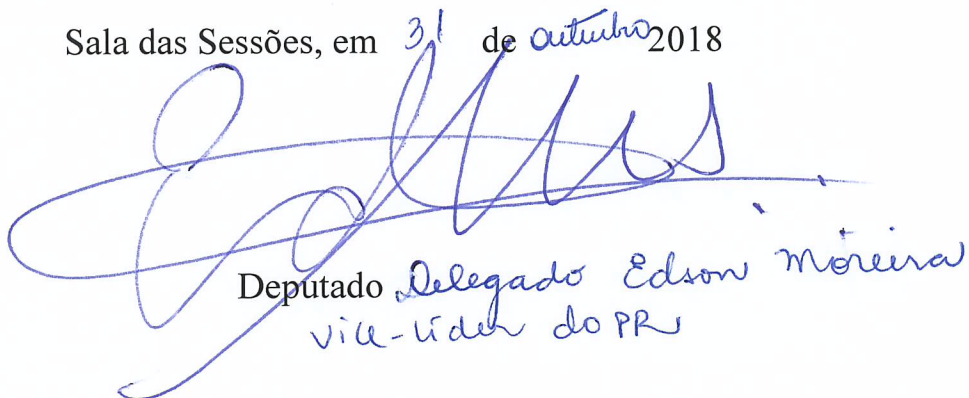 Sala das Sessões, em 31 de outubro 2018
Deputado Delegado Edson Moreira
vice-líder do PR